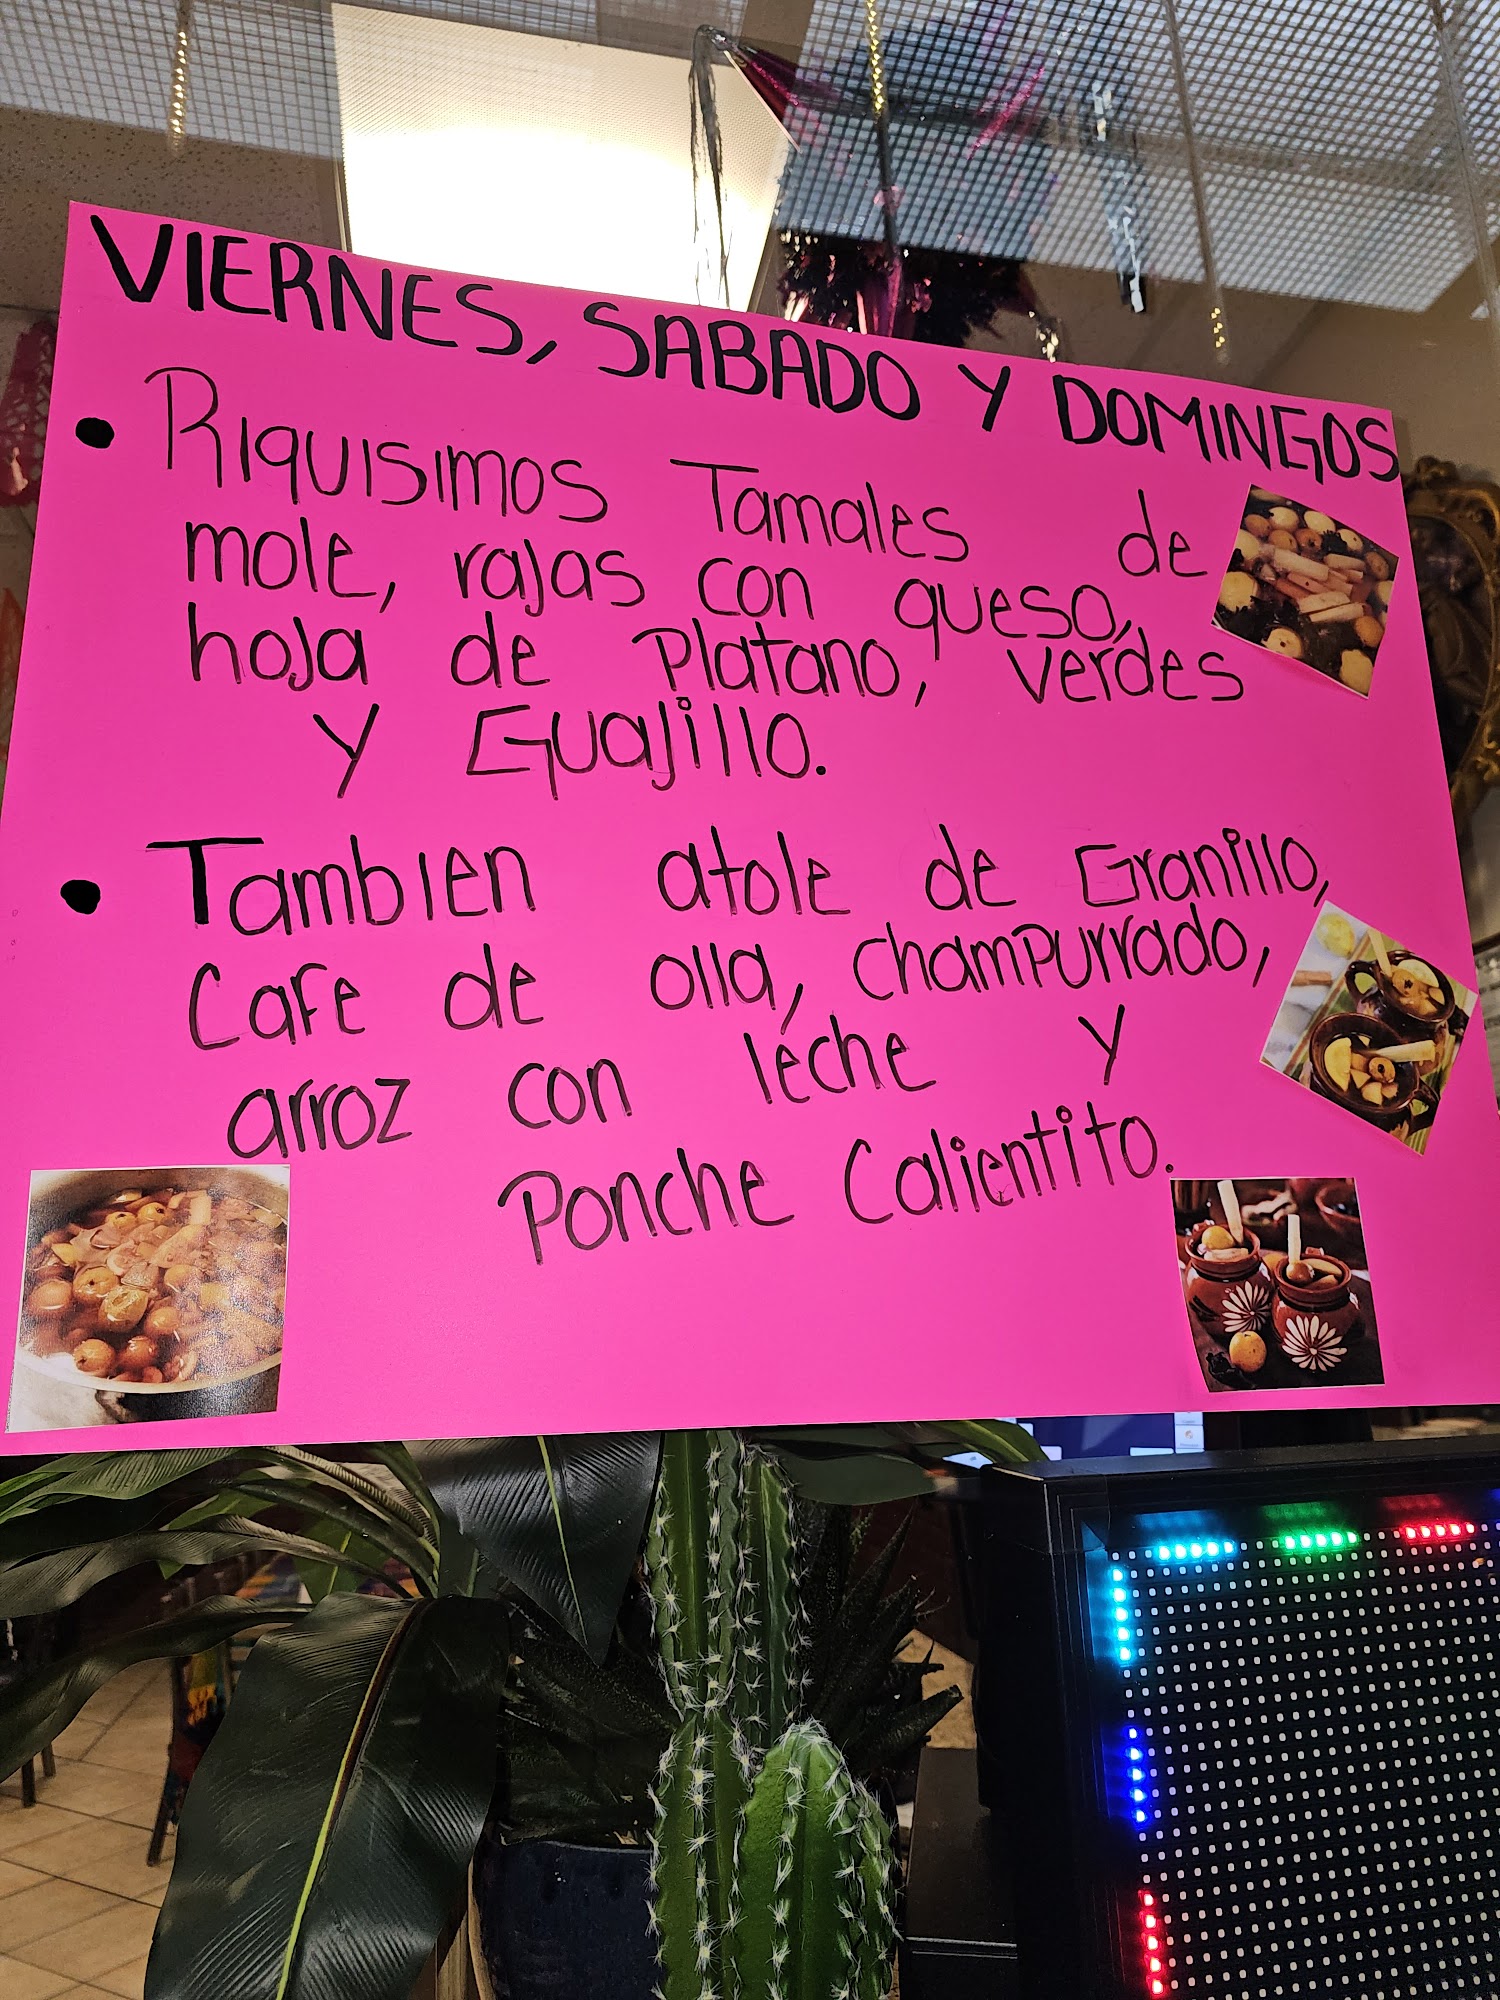 VIERNES, SABADO Y DOMINGOS
• RIQUISIMOS Tamales de
mole, rajas con queso,
hoja de Platano, verdes
Y Guajillo.
• Tambien atole de Granillo,
Cafe de olla, Champurrado,
arroz con leche Y
Ponche Calientito.